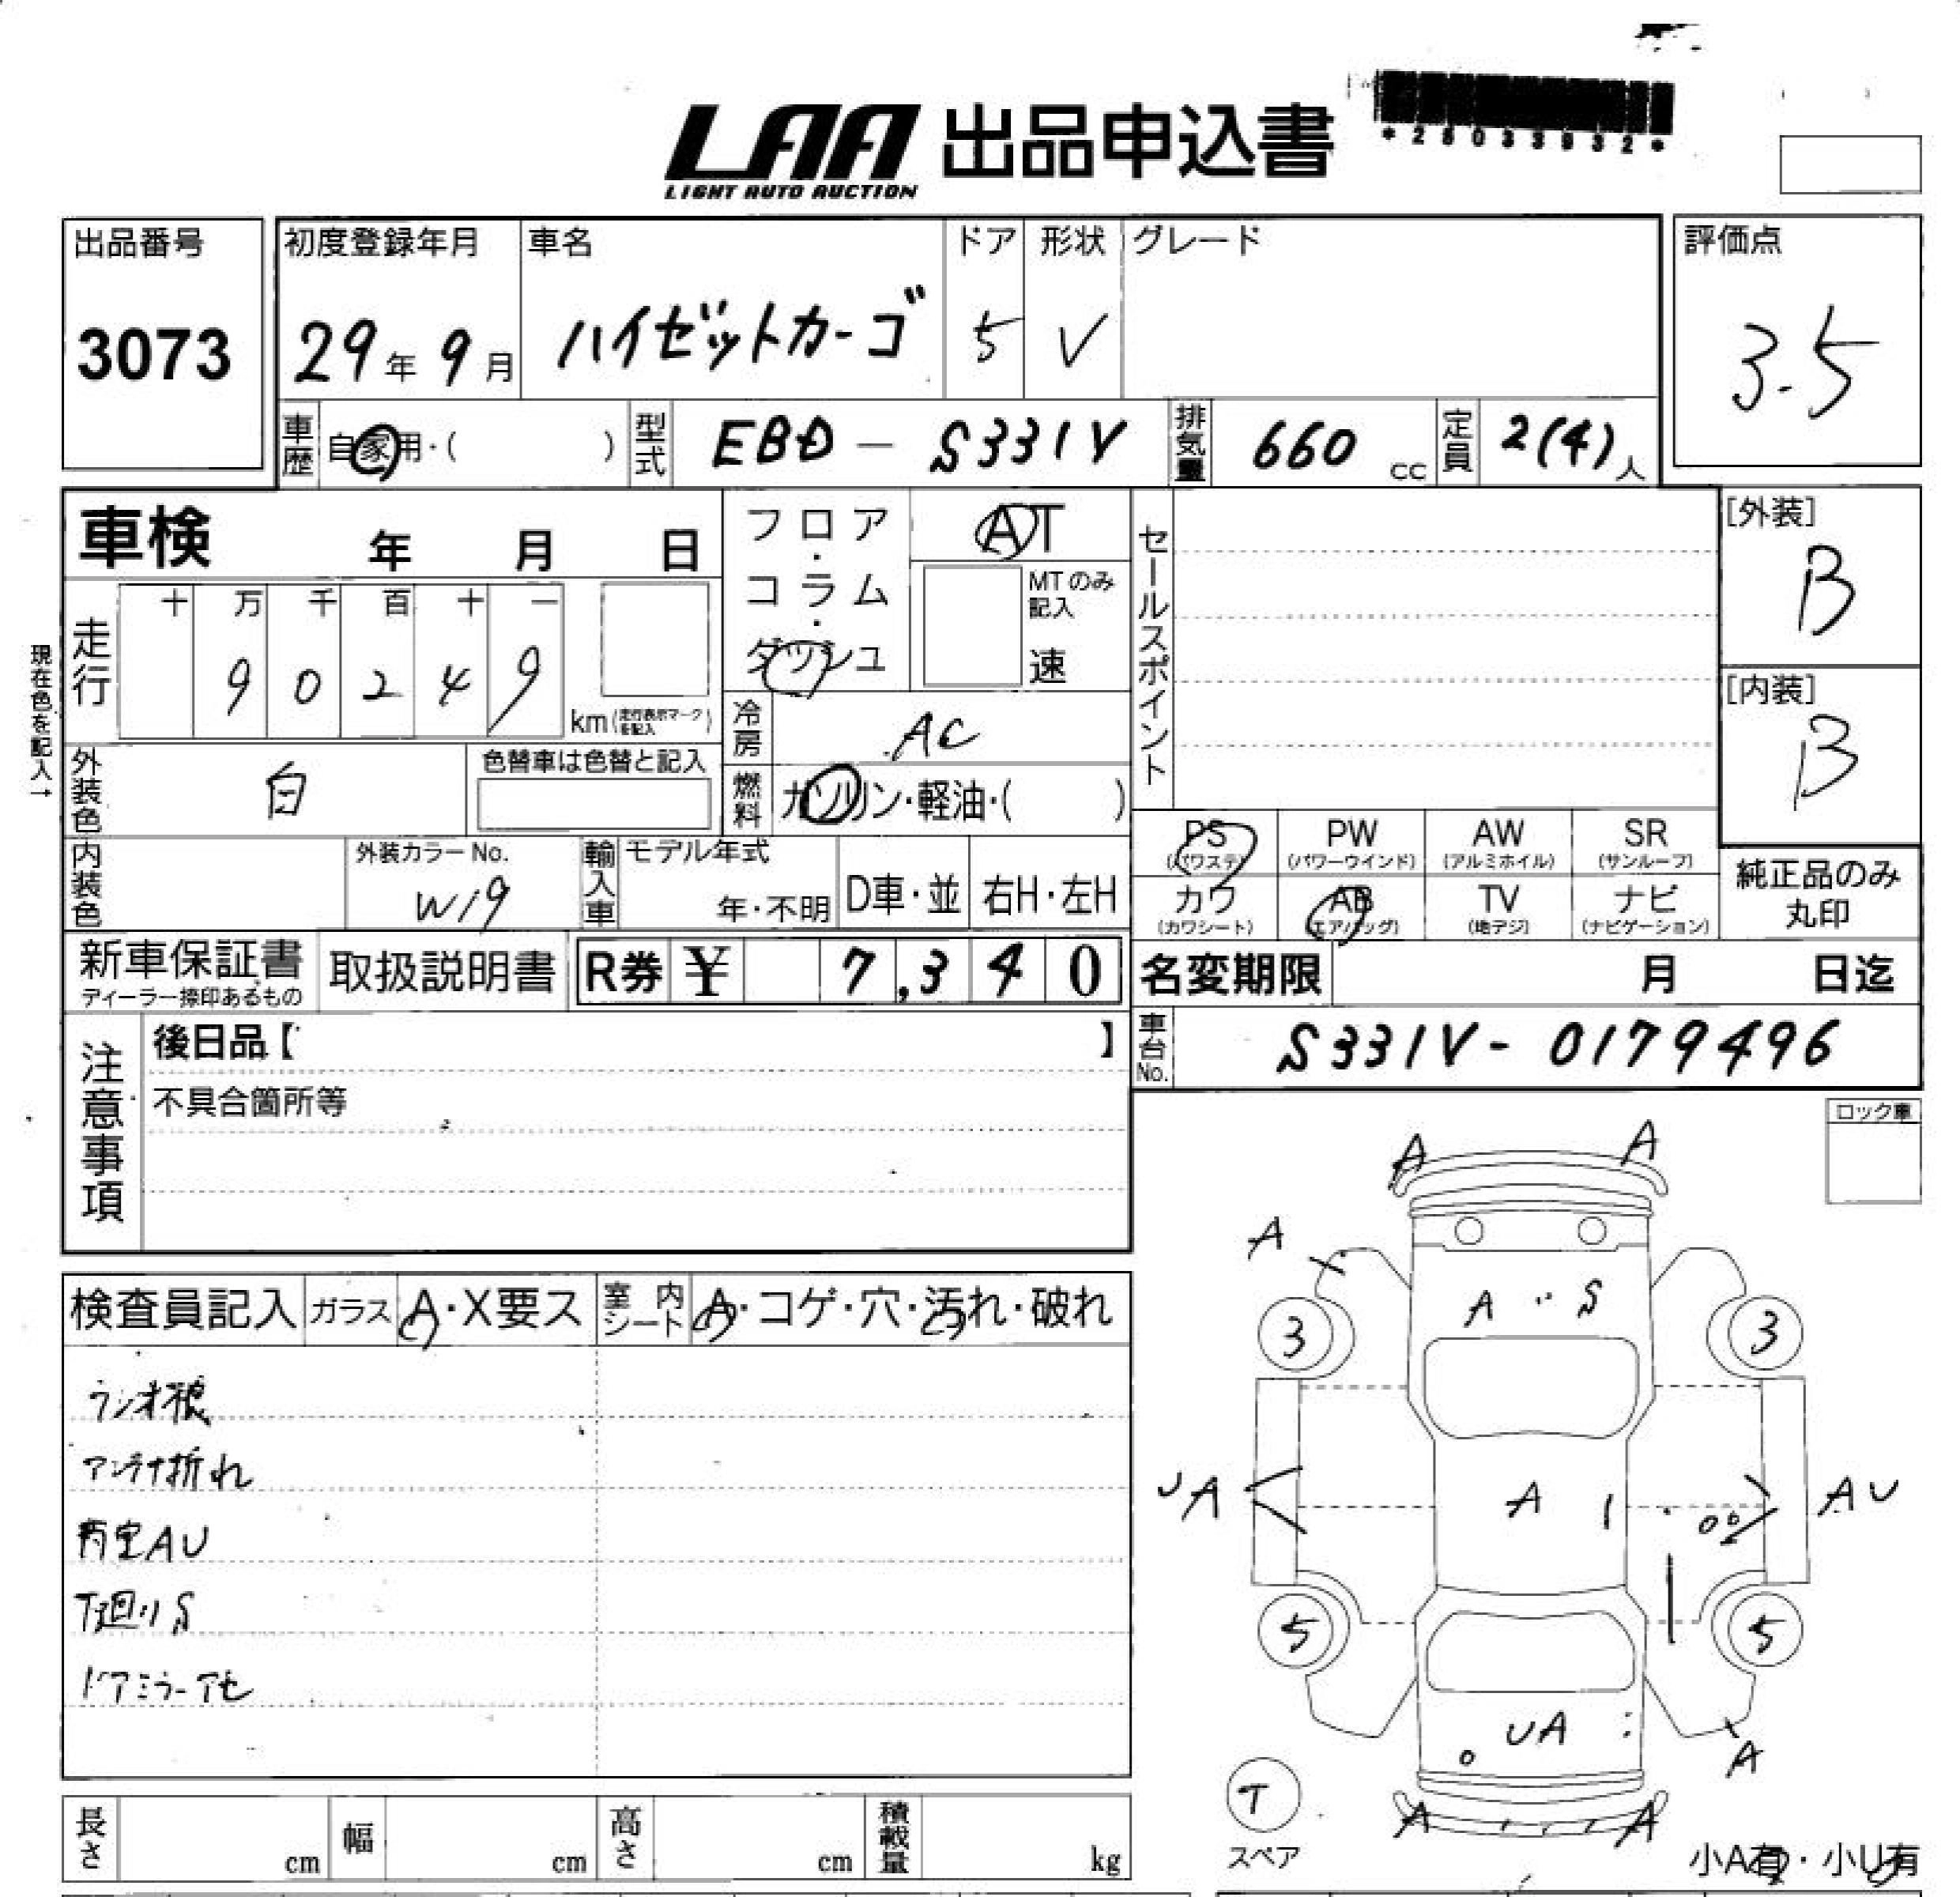 LAA 出品申込書
LIGHT AUTO AUCTION
*28033932*
出品番号
3073
初度登録年月
29年 9月
車名
ハイゼットカーゴ
ドア
5
形状
V
グレード
評価点
3.5
車歴 自家用・( )
型式 EBD - S331V
排気量 660 cc
定員 2(4)人
車検 年 月 日
フロア・コラム・ダッシュ
AT
MTのみ記入
速
セールスポイント
[外装]
B
[内装]
B
現在色を記入→
走行
十 万 千 百 十 一
9 0 2 4 9
km(走行表示マークを記入)
冷房 AC
外装色 白
色替車は色替と記入
燃料 ガソリン・軽油・( )
内装色
外装カラーNo.
W19
輸入車
モデル年式
年・不明
D車・並
右H・左H
PS (パワステ)
PW (パワーウインド)
AW (アルミホイル)
SR (サンルーフ)
カワ (カワシート)
AB (エアバッグ)
TV (地デジ)
ナビ (ナビゲーション)
純正品のみ
丸印
新車保証書
ディーラー捺印あるもの
取扱説明書
R券 ¥ 7,340
名変期限 月 日迄
車台No. S331V- 0179496
注意事項
後日品【 】
不具合箇所等
ロック車
検査員記入
ガラス A・X要ス
室内シート A・コゲ・穴・汚れ・破れ
アンテナ折れ
荷室AU
下廻りS
ドアミラーアセ
A A
A
A S
3 3
UA A AU
5 5
UA
A
T
スペア
A A
小A有・小U有
長さ cm
幅 cm
高さ cm
積載量 kg